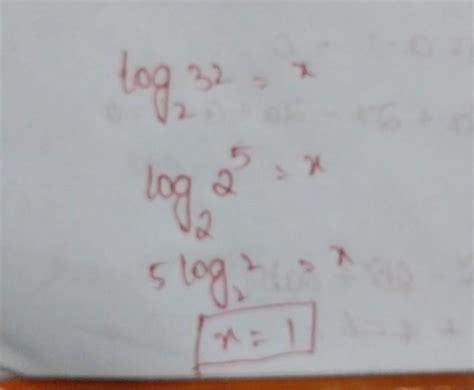 log₂ 32 = x
log₂ 2⁵ = x
5 log₂ 2 = x
x = 1